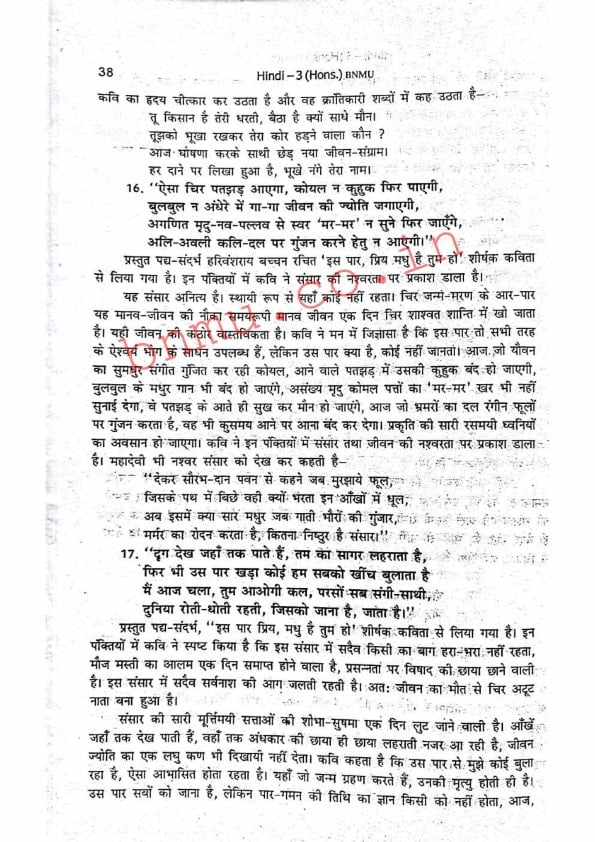 38
Hindi – 3 (Hons.) BNMU
कवि का हृदय चीत्कार कर उठता है और वह क्रांतिकारी शब्दों में कह उठता है—
तू किसान है तेरी धरती, बैठा है क्यों साधे मौन।
तूझको भूखा रखकर तेरा कोर हड़ने वाला कौन ?
आज घोषणा करके साथी छेड़ नया जीवन-संग्राम।
हर दाने पर लिखा हुआ है, भूखे नंगे तेरा नाम।
16. ‘‘ऐसा चिर पतझड़ आएगा, कोयल न कुहुक फिर पाएगी,
बुलबुल न अंधेरे में गा-गा जीवन की ज्योति जगाएगी,
अगणित मृदु-नव-पल्लव से स्वर ‘मर-मर’ न सुने फिर जाएँगे,
अलि-अवली कलि-दल पर गुंजन करने हेतु न आएगी।’’
प्रस्तुत पद्य-संदर्भ हरिवंशराय बच्चन रचित ‘इस पार, प्रिय मधु है तुम हो’ शीर्षक कविता
से लिया गया है। इन पंक्तियों में कवि ने संसार की नश्वरता पर प्रकाश डाला है।
यह संसार अनित्य है। स्थायी रूप से यहाँ कोई नहीं रहता। चिर जन्म-मरण के आर-पार
यह मानव-जीवन की नौका समयरूपी मानव जीवन एक दिन चिर शाश्वत शान्ति में खो जाता
है। यही जीवन की कठोर वास्तविकता है। कवि ने मन में जिज्ञासा है कि इस पार तो सभी तरह
के ऐश्वर्य भोग के साधन उपलब्ध हैं, लेकिन उस पार क्या है, कोई नहीं जानता। आज जो यौवन
का सुमधुर संगीत गुंजित कर रही कोयल, आने वाले पतझड़ में उसकी कुहुक बंद हो जाएगी,
बुलबुल के मधुर गान भी बंद हो जाएंगे, असंख्य मृदु कोमल पत्तों का ‘मर-मर’ खर भी नहीं
सुनाई देगा, वे पतझड़ के आते ही सुख कर मौन हो जाएंगे, आज जो भ्रमरों का दल रंगीन फूलों
पर गुंजन करता है, वह भी कुसमय आने पर आना बंद कर देगा। प्रकृति की सारी रसमयी ध्वनियों
का अवसान हो जाएगा। कवि ने इन पंक्तियों में संसार तथा जीवन की नश्वरता पर प्रकाश डाला
है। महादेवी भी नश्वर संसार को देख कर कहती है—
‘‘देकर सौरभ-दान पवन से कहने जब मुरझाये फूल,
जिसके पथ में बिछे वही क्यों भरता इन आँखों में धूल,
अब इसमें क्या सार मधुर जब गाती भौंरों की गुंजार,
मर्मर का रोदन करता है, कितना निष्ठुर है संसार।’’
17. ‘‘दृग देख जहाँ तक पाते हैं, तम का सागर लहराता है,
फिर भी उस पार खड़ा कोई हम सबको खींच बुलाता है
मैं आज चला, तुम आओगी कल, परसों सब संगी-साथी,
दुनिया रोती-धोती रहती, जिसको जाना है, जाता है।’’
प्रस्तुत पद्य-संदर्भ, ‘‘इस पार प्रिय, मधु है तुम हो’ शीर्षक कविता से लिया गया है। इन
पंक्तियों में कवि ने स्पष्ट किया है कि इस संसार में सदैव किसी का बाग हरा-भरा नहीं रहता,
मौज मस्ती का आलम एक दिन समाप्त होने वाला है, प्रसन्नता पर विषाद की छाया छाने वाली
है। इस संसार में सदैव सर्वनाश की आग जलती रहती है। अतः जीवन का मौत से चिर अटूट
नाता बना हुआ है।
संसार की सारी मूर्त्तिमयी सत्ताओं की शोभा-सुषमा एक दिन लुट जाने वाली है। आँखें
जहाँ तक देख पाती हैं, वहाँ तक अंधकार की छाया ही छाया लहराती नजर आ रही है, जीवन
ज्योति का एक लघु कण भी दिखायी नहीं देता। कवि कहता है कि उस पार से मुझे कोई बुला
रहा है, ऐसा आभासित होता रहता है। यहाँ जो जन्म ग्रहण करते हैं, उनकी मृत्यु होती ही है।
उस पार सबों को जाना है, लेकिन पार-गमन की तिथि का ज्ञान किसी को नहीं होता, आज,
bnmu.co.in